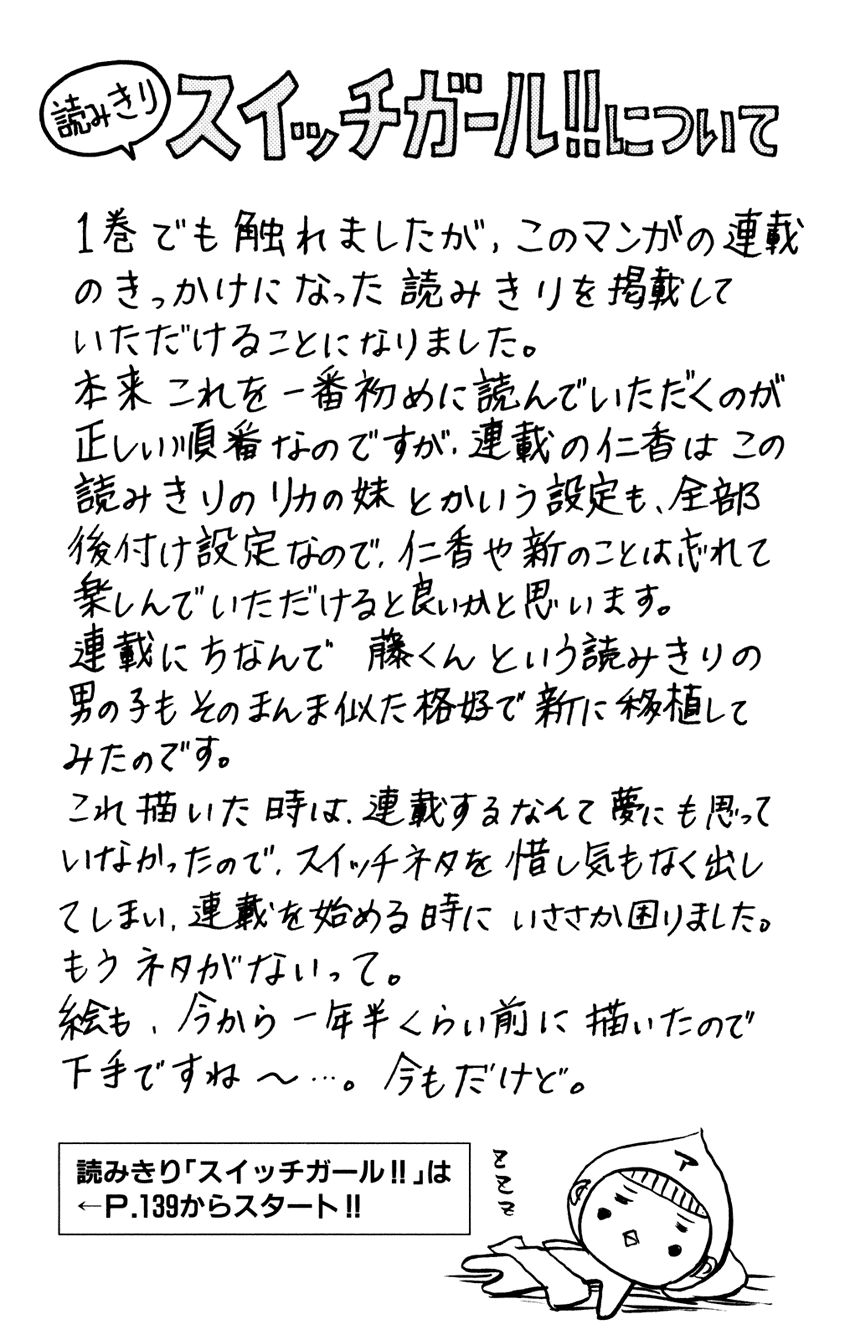 読みきり スイッチガール!!について
1巻でも触れましたが、このマンガの連載
のきっかけになった読みきりを掲載して
いただけることになりました。
本来これを一番初めに読んでいただくのが
正しい順番なのですが、連載の仁香はこの
読みきりのリカの妹とかいう設定も、全部
後付け設定なので、仁香や新のことは忘れて
楽しんでいただけると良いかと思います。
連載にちなんで 藤くんという読みきりの
男の子もそのまんま似た格好で新に移植して
みたのです。
これ描いた時は、連載するなんて夢にも思って
いなかったので、スイッチネタを惜し気もなく出し
てしまい、連載を始める時にいささか困りました。
もうネタがないって。
絵も、今から一年半くらい前に描いたので
下手ですね〜…。今もだけど。
読みきり「スイッチガール!!」は
←P.139からスタート!!
ア